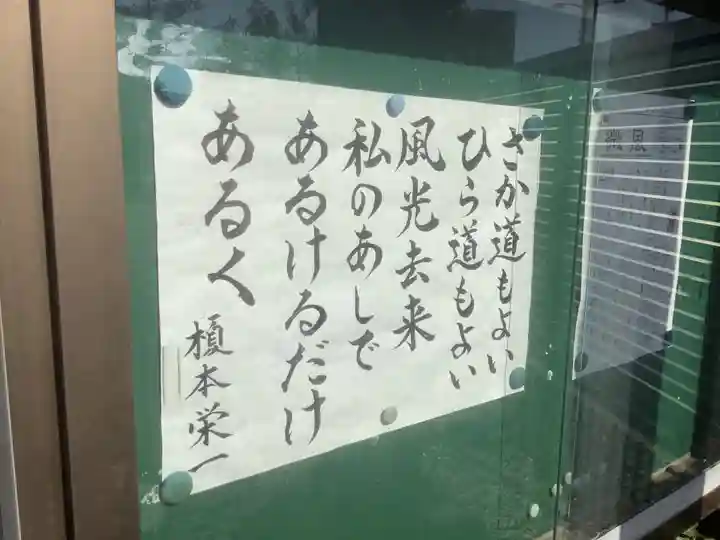 さか道もよい
ひら道もよい
風光去来
私のあしで
あるけるだけ
あるく
榎本栄一
微風